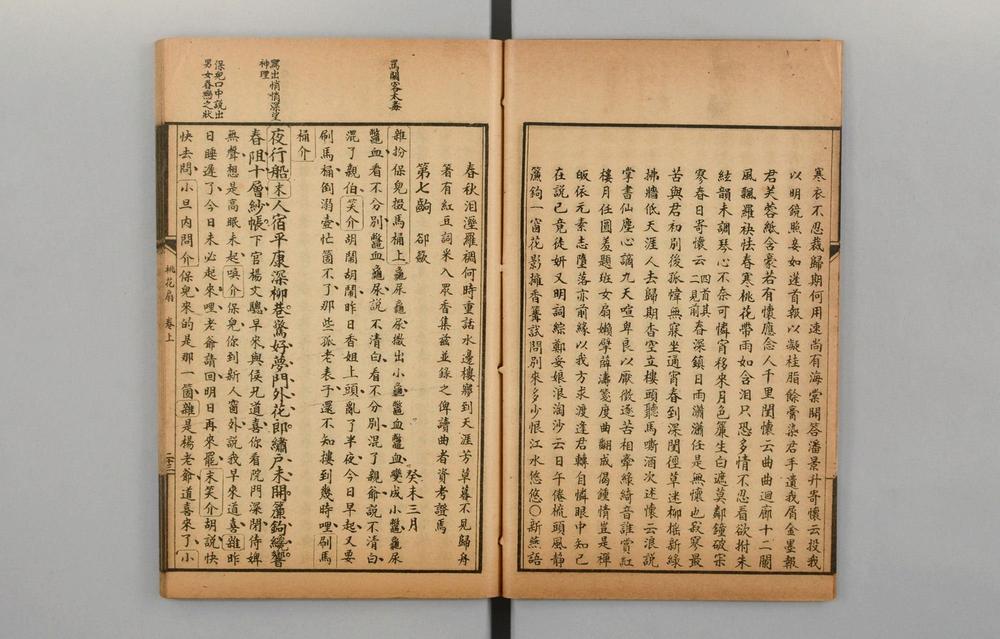 寒衣不忍裁歸期何用速尚有海棠開答潘景升寄懷云投我
以明鏡照妾如蓮首報以凝桂脂餘膏染君手遺我屑金墨報
君芙蓉紙含豪若有懷應念人千里閨懷云曲曲迴廊十二闌
風飄羅袂怯春寒桃花帶雨如含泪只恐多情不忍看欲拊朱
絃韻未調琴心不奈可憐宵移來月色簾生白遮莫鄰鐘破寂
寥春日寄懷云四首其二見前春深鎮日雨瀟瀟任是無懷也寂寥最
苦與君初別後孤幃無寐坐通宵春到深閨徑草迷柳搖新綠
拂牆低天涯人去歸期杳空立樓頭聽馬嘶酒次述懷云浪說
掌書仙塵心謫九天喧卑良以厭微逐苦相牽綠綺音誰賞紅
樓月任圓羞題班女扇嬾擘薛濤箋度曲翻成偈鍾情豈是禪
皈依元素志墮落亦前緣以我方求渡逢君轉自憐眼中知己
在説已竟徒妍又明詞綜鄭妥娘浪淘沙云日午倦梳頭風靜
簾鉤一窗花影擁香篝試問別來多少恨江水悠悠〇新燕語
春秋泪溼羅襴何時重話水邊樓夢到天涯芳草暮不見歸舟
著有紅豆詞采入眾香集茲並錄之俾讀曲者資考證焉
第七齣 卻奩
癸未三月
雜扮保兒掇馬桶上龜尿龜尿撒出小龜鼈血鼈血變成小鼈龜尿
鼈血看不分別鼈血龜尿說不清白看不分別混了親爺說不清白
混了親伯笑介胡鬧胡鬧昨日香姐上頭亂了半夜今日早起又要
刷馬桶倒溺壺忙箇不了那些孤老表子還不知摟到幾時哩刷馬
桶介
夜行船末人宿平康深柳巷驚好夢門外花郎繡戶未開簾鉤纔響
春阻十層紗帳下官楊文驄早來與侯兄道喜你看院門深閉侍婢
無聲想是高眠未起喚介保兒你到新人窗外說我早來道喜雜昨
日睡遲了今日未必起來哩老爺請回明日再來罷末笑介胡說快
快去問小旦內問介保兒來的是那一箇雜是楊老爺道喜來了小
罵闞客太毒
寫出悄悄深望
神理
保兒口中說出
男女眷戀之狀
桃花扇
卷上